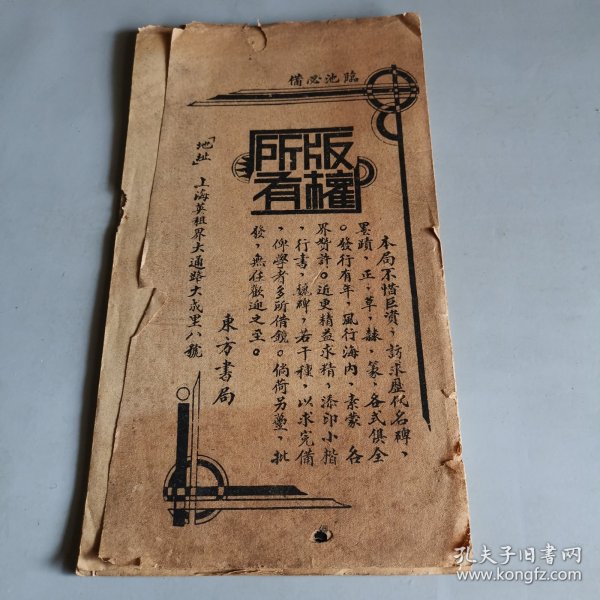 臨池必備
版權
所有
本局不惜巨資，訪求歷代名碑、
墨蹟，正，草，隸，篆，各式俱全
。發行有年，風行海內，素蒙　各
界贊許。近更精益求精，添印小楷
，行書，魏碑，若干種，以求完備
，俾學者多所借鏡。倘荷另躉，批
發，無任歡迎之至。
東方書局
「地址」 上海英租界大通路大成里八號
孔夫子旧书网
www.kongfz.com